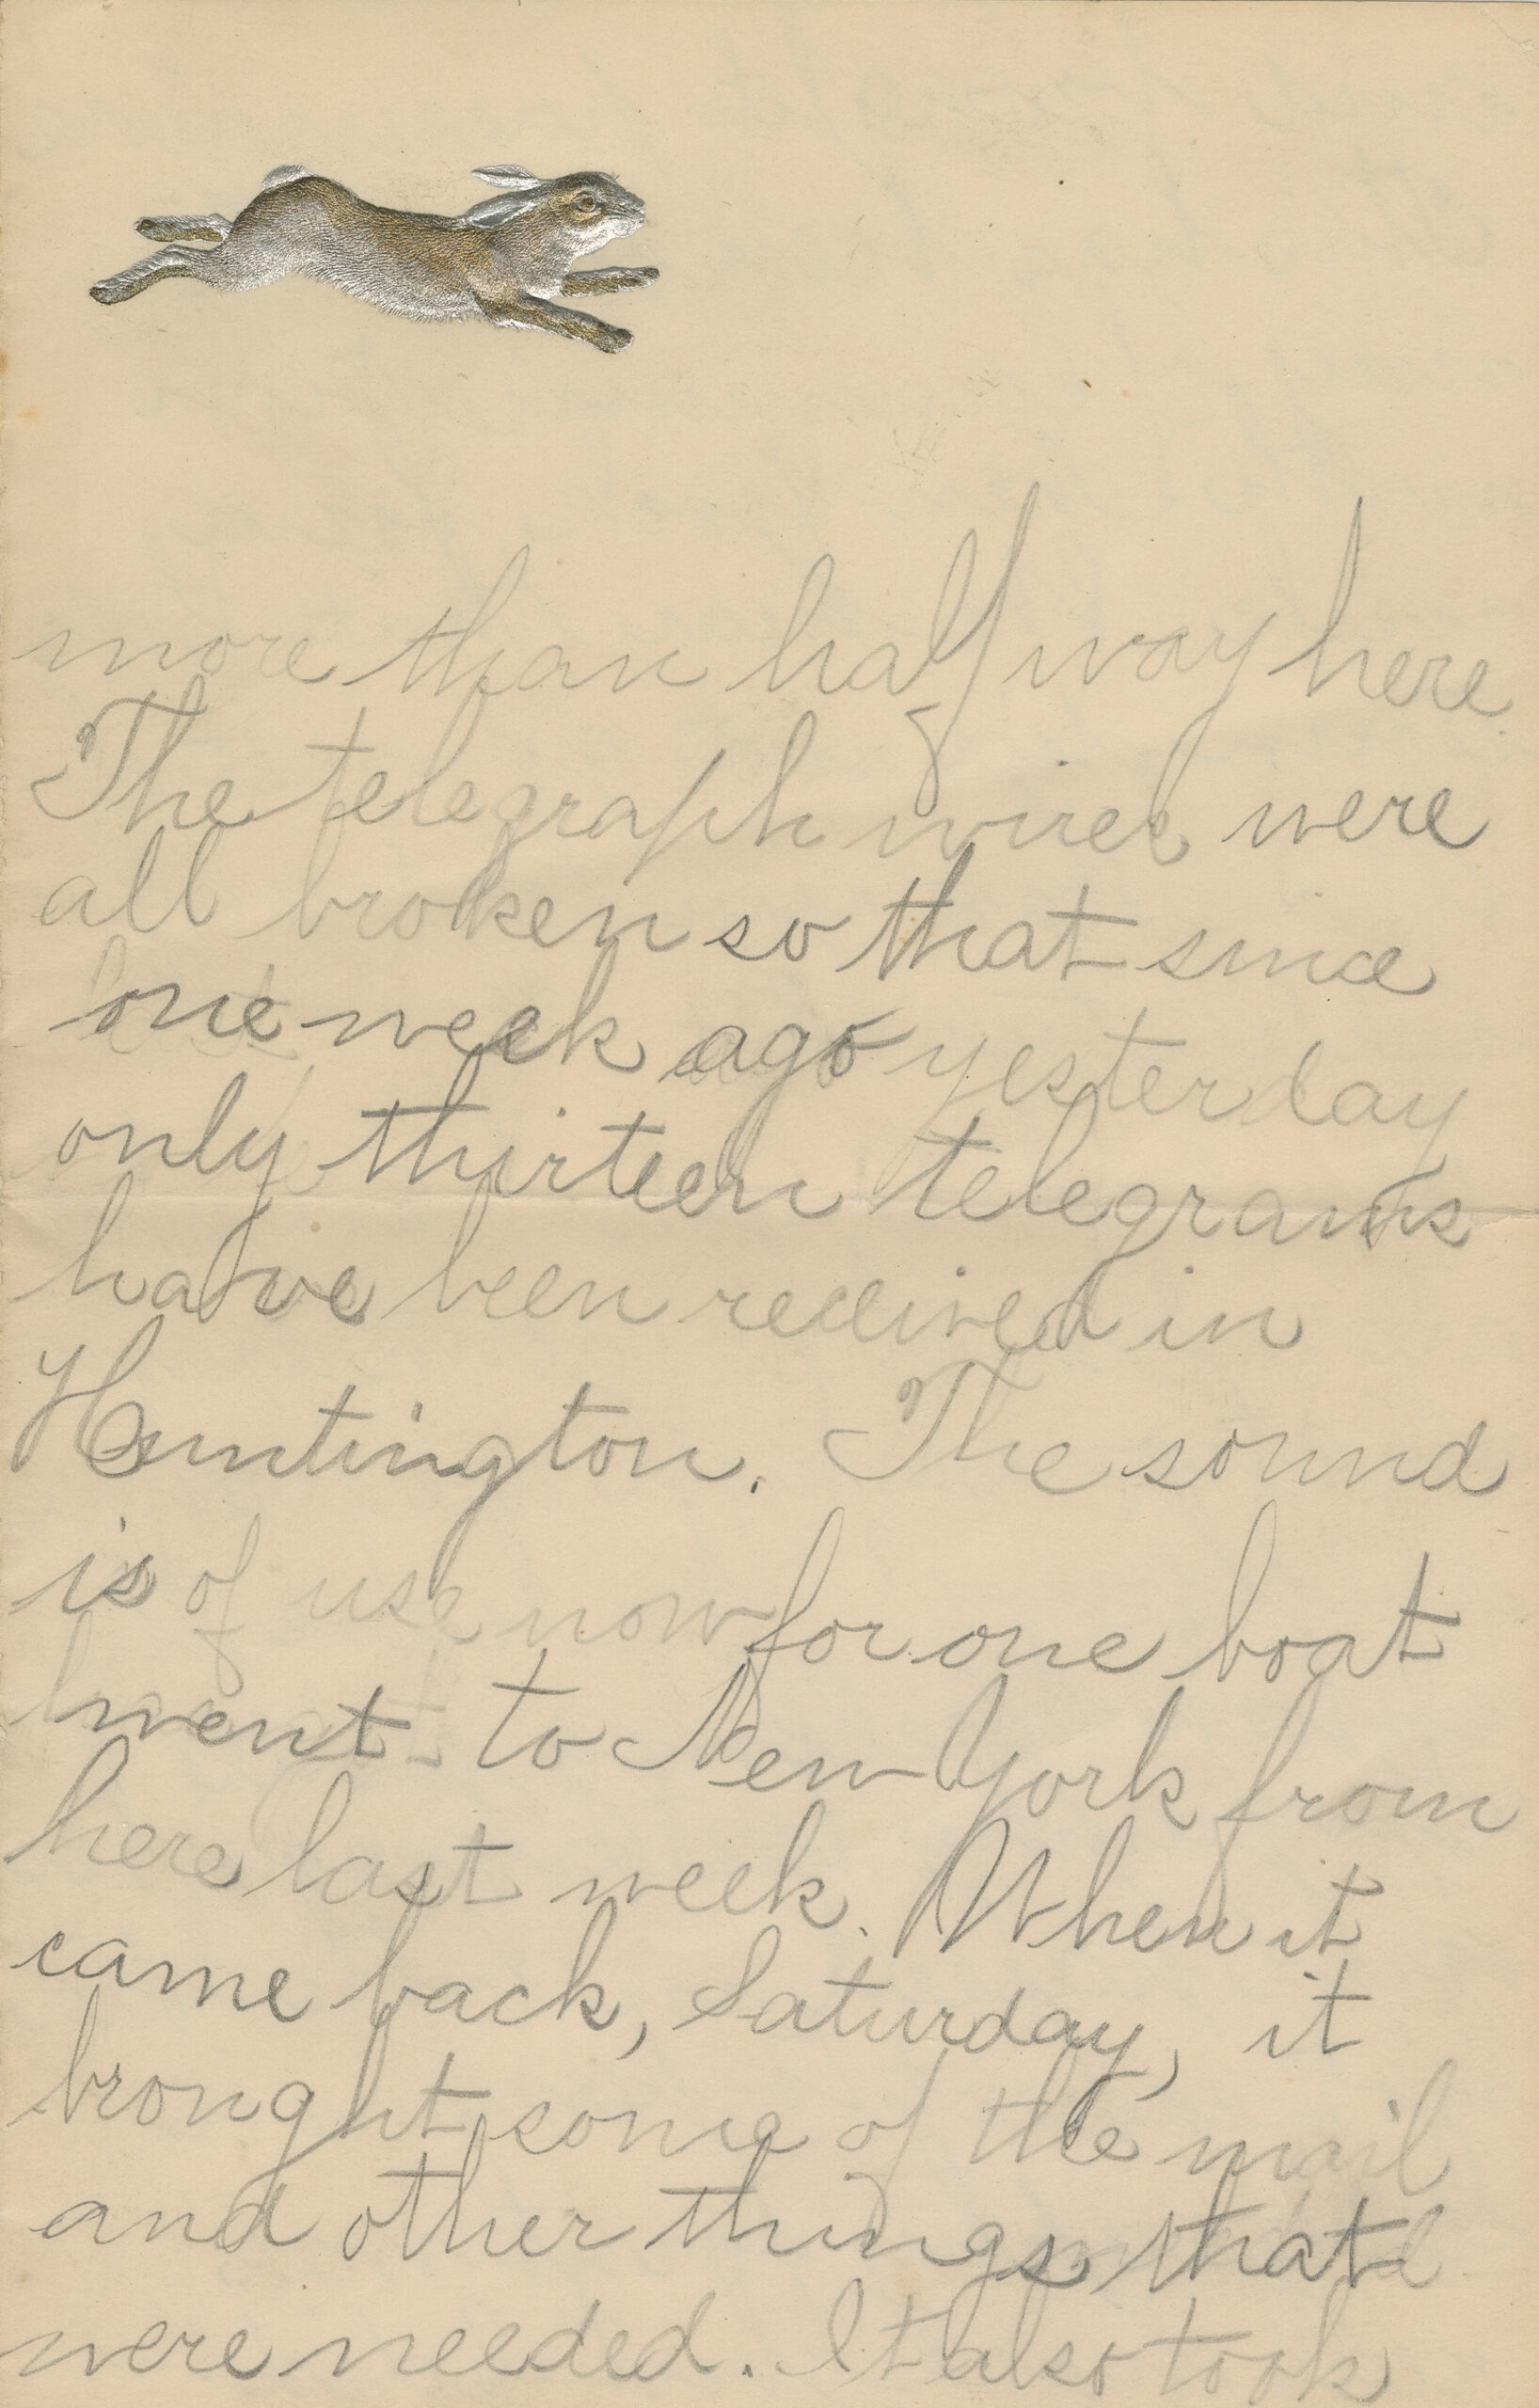 more than half way here.
The telegraph wires were
all broken so that since
one week ago yesterday
only thirteen telegrams
have been received in
Huntington. The sound
is of use now for one boat
went to New York from
here last week. When it
came back, Saturday, it
brought some of the mail
and other things that
were needed. It also took